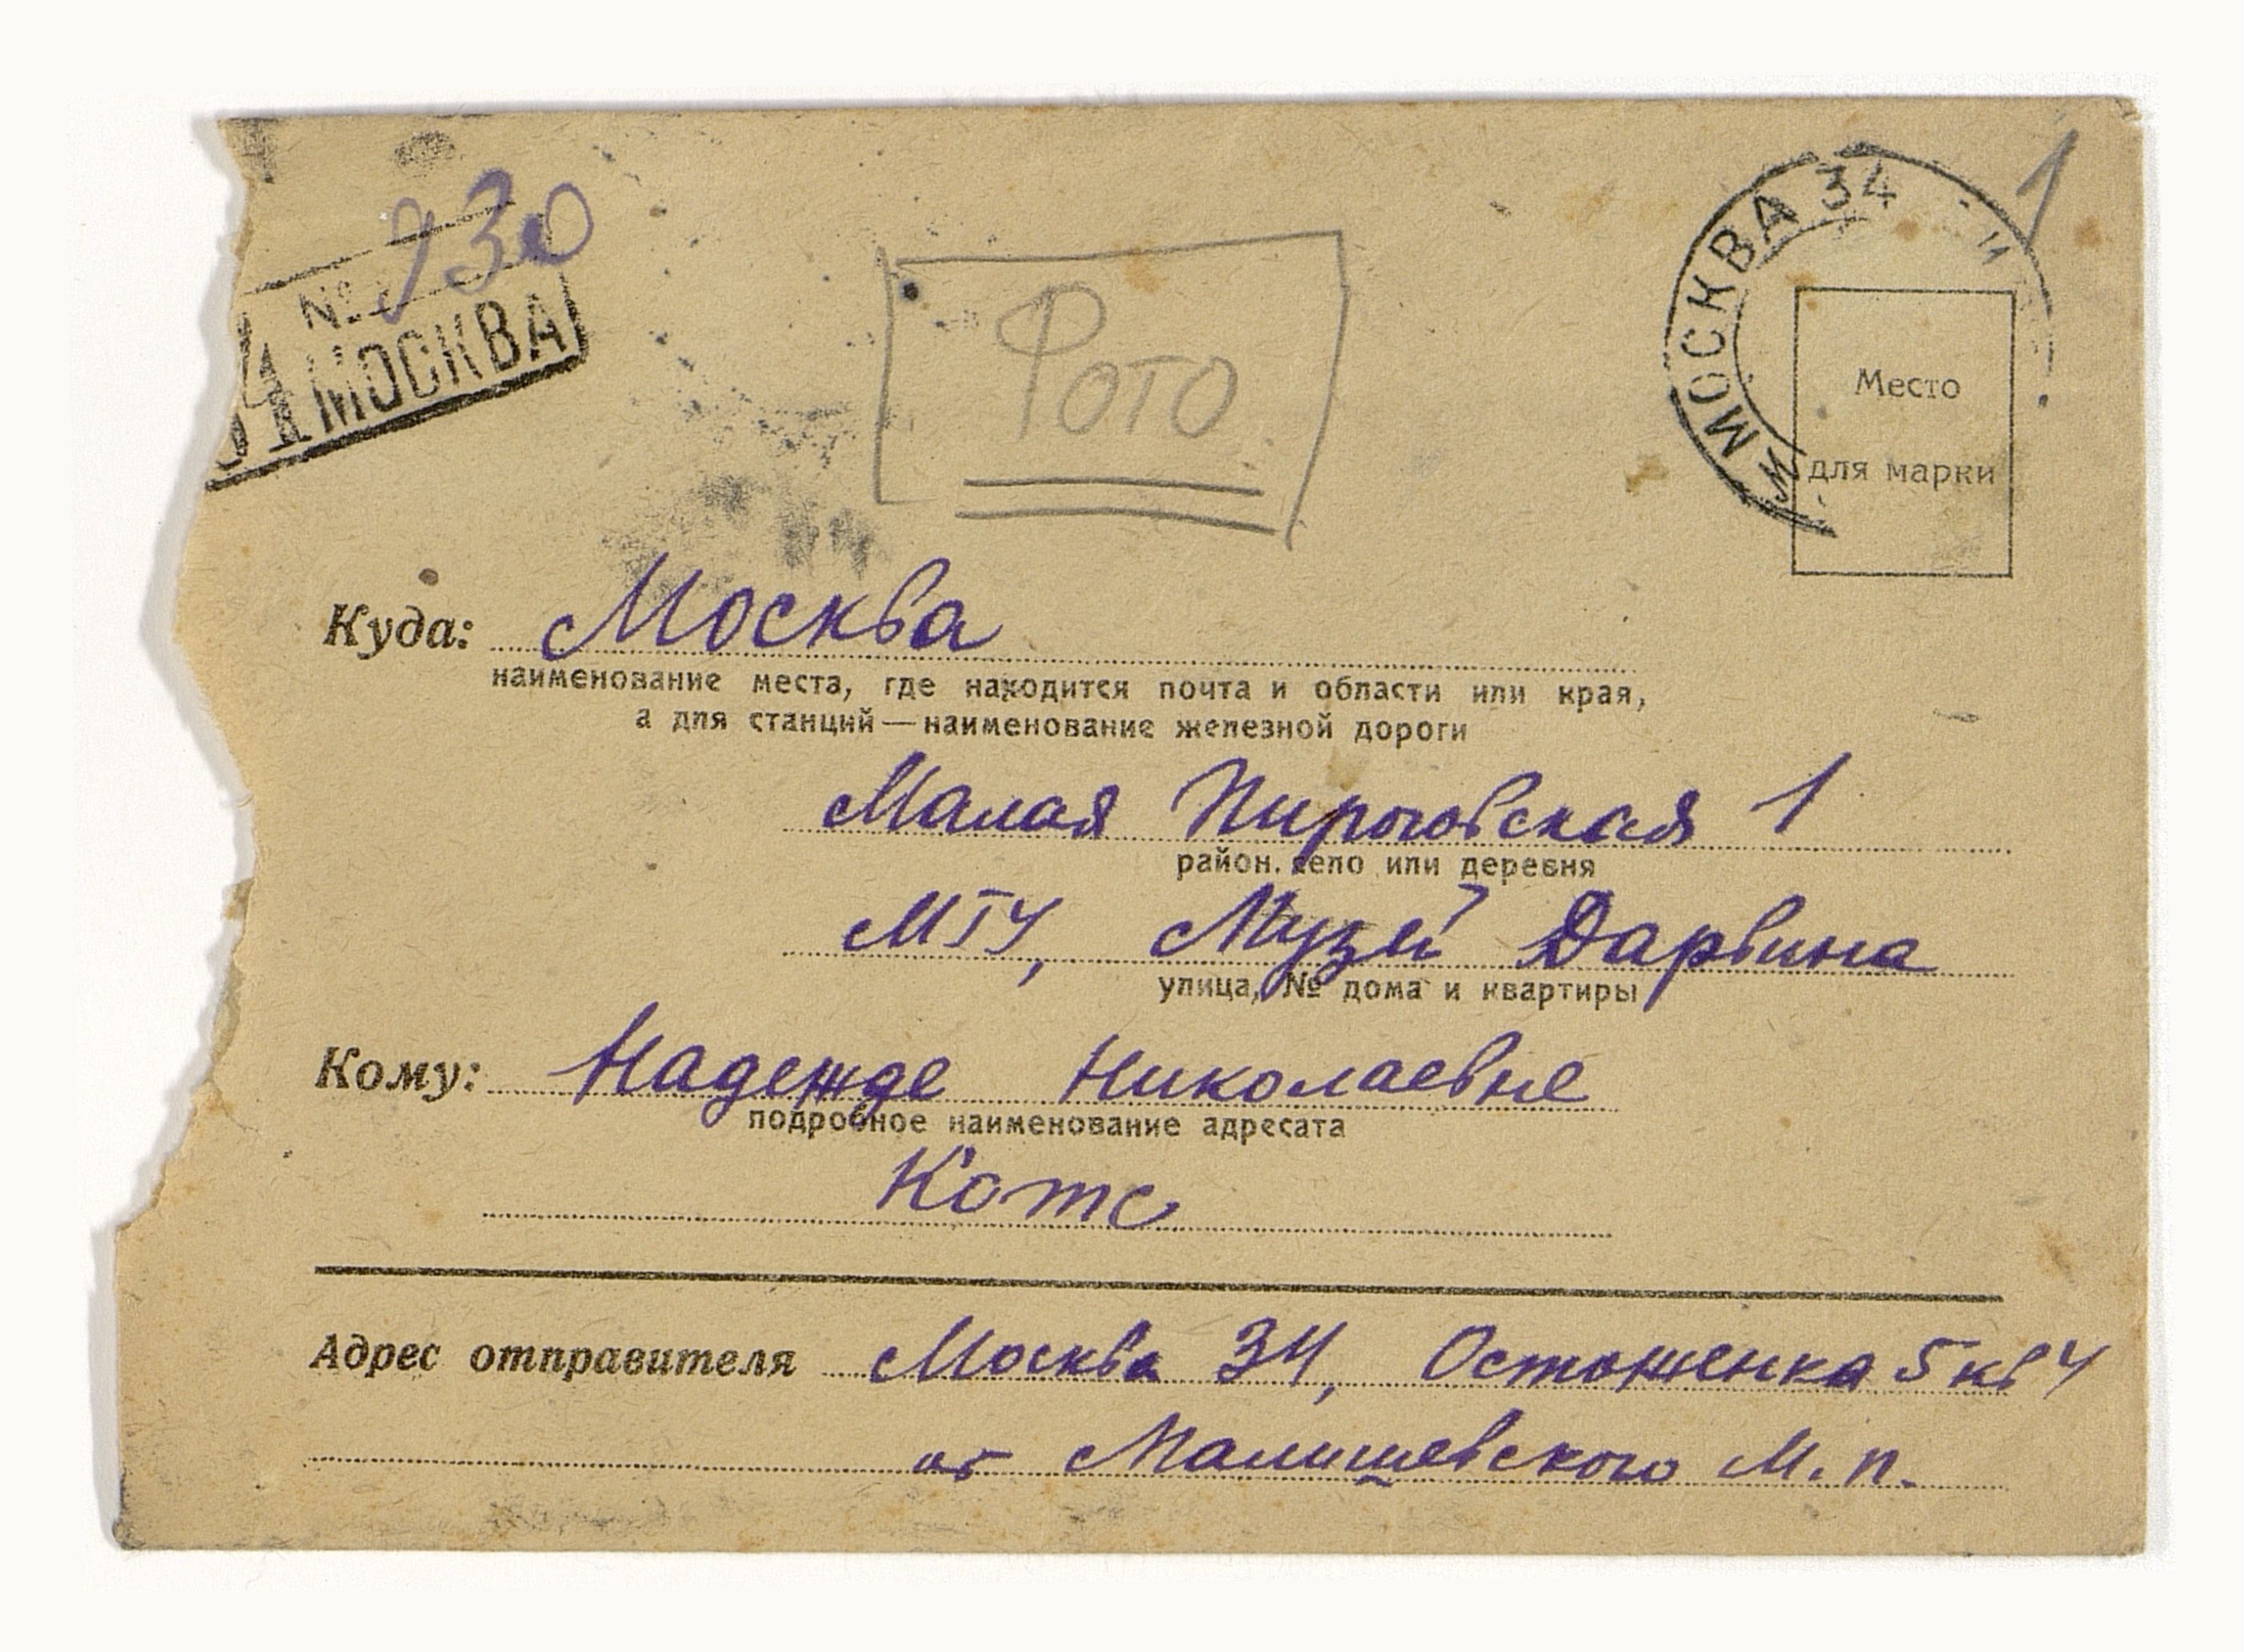 № 930
34 МОСКВА
Фото
МОСКВА 34
1
Место
для марки
Куда: Москва
наименование места, где находится почта и области или края,
а для станций — наименование железной дороги
Малая Пироговская 1
район, село или деревня
МГУ, Музей Дарвина
улица, № дома и квартиры
Кому: Надежде Николаевне
подробное наименование адресата
Котс
Адрес отправителя Москва 34, Остоженка 5 кв 4
от Малишевского М. П.